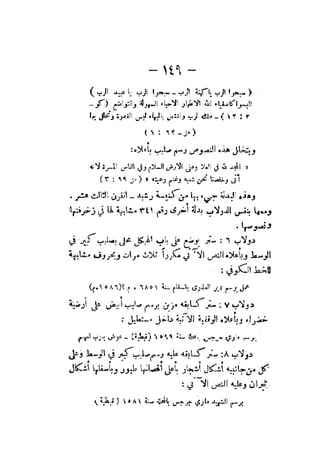 — ١٤٩ —
( سبحوا الرب يا كهنة الرب – سبحوا الرب يا عبيد الرب )
البسوا كأصفياء الله الاطهار الاحباء السهولة والتواضع ( كو ..
٣ : ١٢ ) – ملك الرب ولبس البهاء لبس القوة وتمنطق بها
( مز – ٩٢ : ١ )
ويتخلل هذه النصوص رسم صليب بأعلاه :
« المجد لله في العلا وعلى الارض السلام وفي الناس المسرة لأنه
أتى وخلصنا نحن شعبه وغنم رعيته » ( مز ٩٩ : ٣ )
وهذه البدلة جيء بها من كنيسة رشيد – القرن الثالث عشر .
ومعها بنفس الدولاب بدلة أخرى رقم ٣٤١ مشابهة لها في زخرفتها
ونصوصها .
دولاب ٦ : ستر يوضع على باب الهيكل محلى بصليب كبير في
الوسط وبأعلاه النص الآتي مكرراً ثلاث مرات وبحروف مشابهة
للخط الكوفي :
عمل برسم دير العذرى بالمقام سنة ٦٨٥١ . م ؟ (١٥٨٦م)
دولاب ٧ : ستر كسابقه مزين برسم صليب أبيض على أرضية
خضراء وبأعلاه الوقفية الآتية داخل مستطيل :
برسم ماري جرجس سنة ١٥٦٩ (قبطية) – عوض يارب لهم
دولاب ٨ : ستر كسابقه عليه رسم صليب كبير في الوسط وعلى
كل من جانبيه أشكال أشجار بأعلى أغصانها طيور وبأسفلها أشكال
ثيران وعليه النص الآتي :
برسم الشهيد ماري جرجس بالمحلة سنة ١٥٨١ ( قبطية )